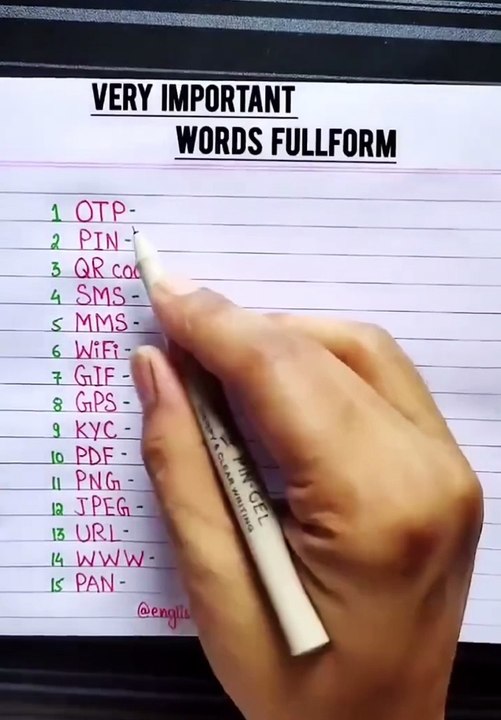 VERY IMPORTANT
WORDS FULLFORM
1 OTP-
2 PIN-
3 QR
4 SMS-
5 MMS-
6 WiFi-
7 GIF-
8 GPS-
9 KYC-
10 PDF-
11 PNG-
12 JPEG-
13 URL-
14 WWW-
15 PAN-
PIN-GEL
& CLEAR WRITING